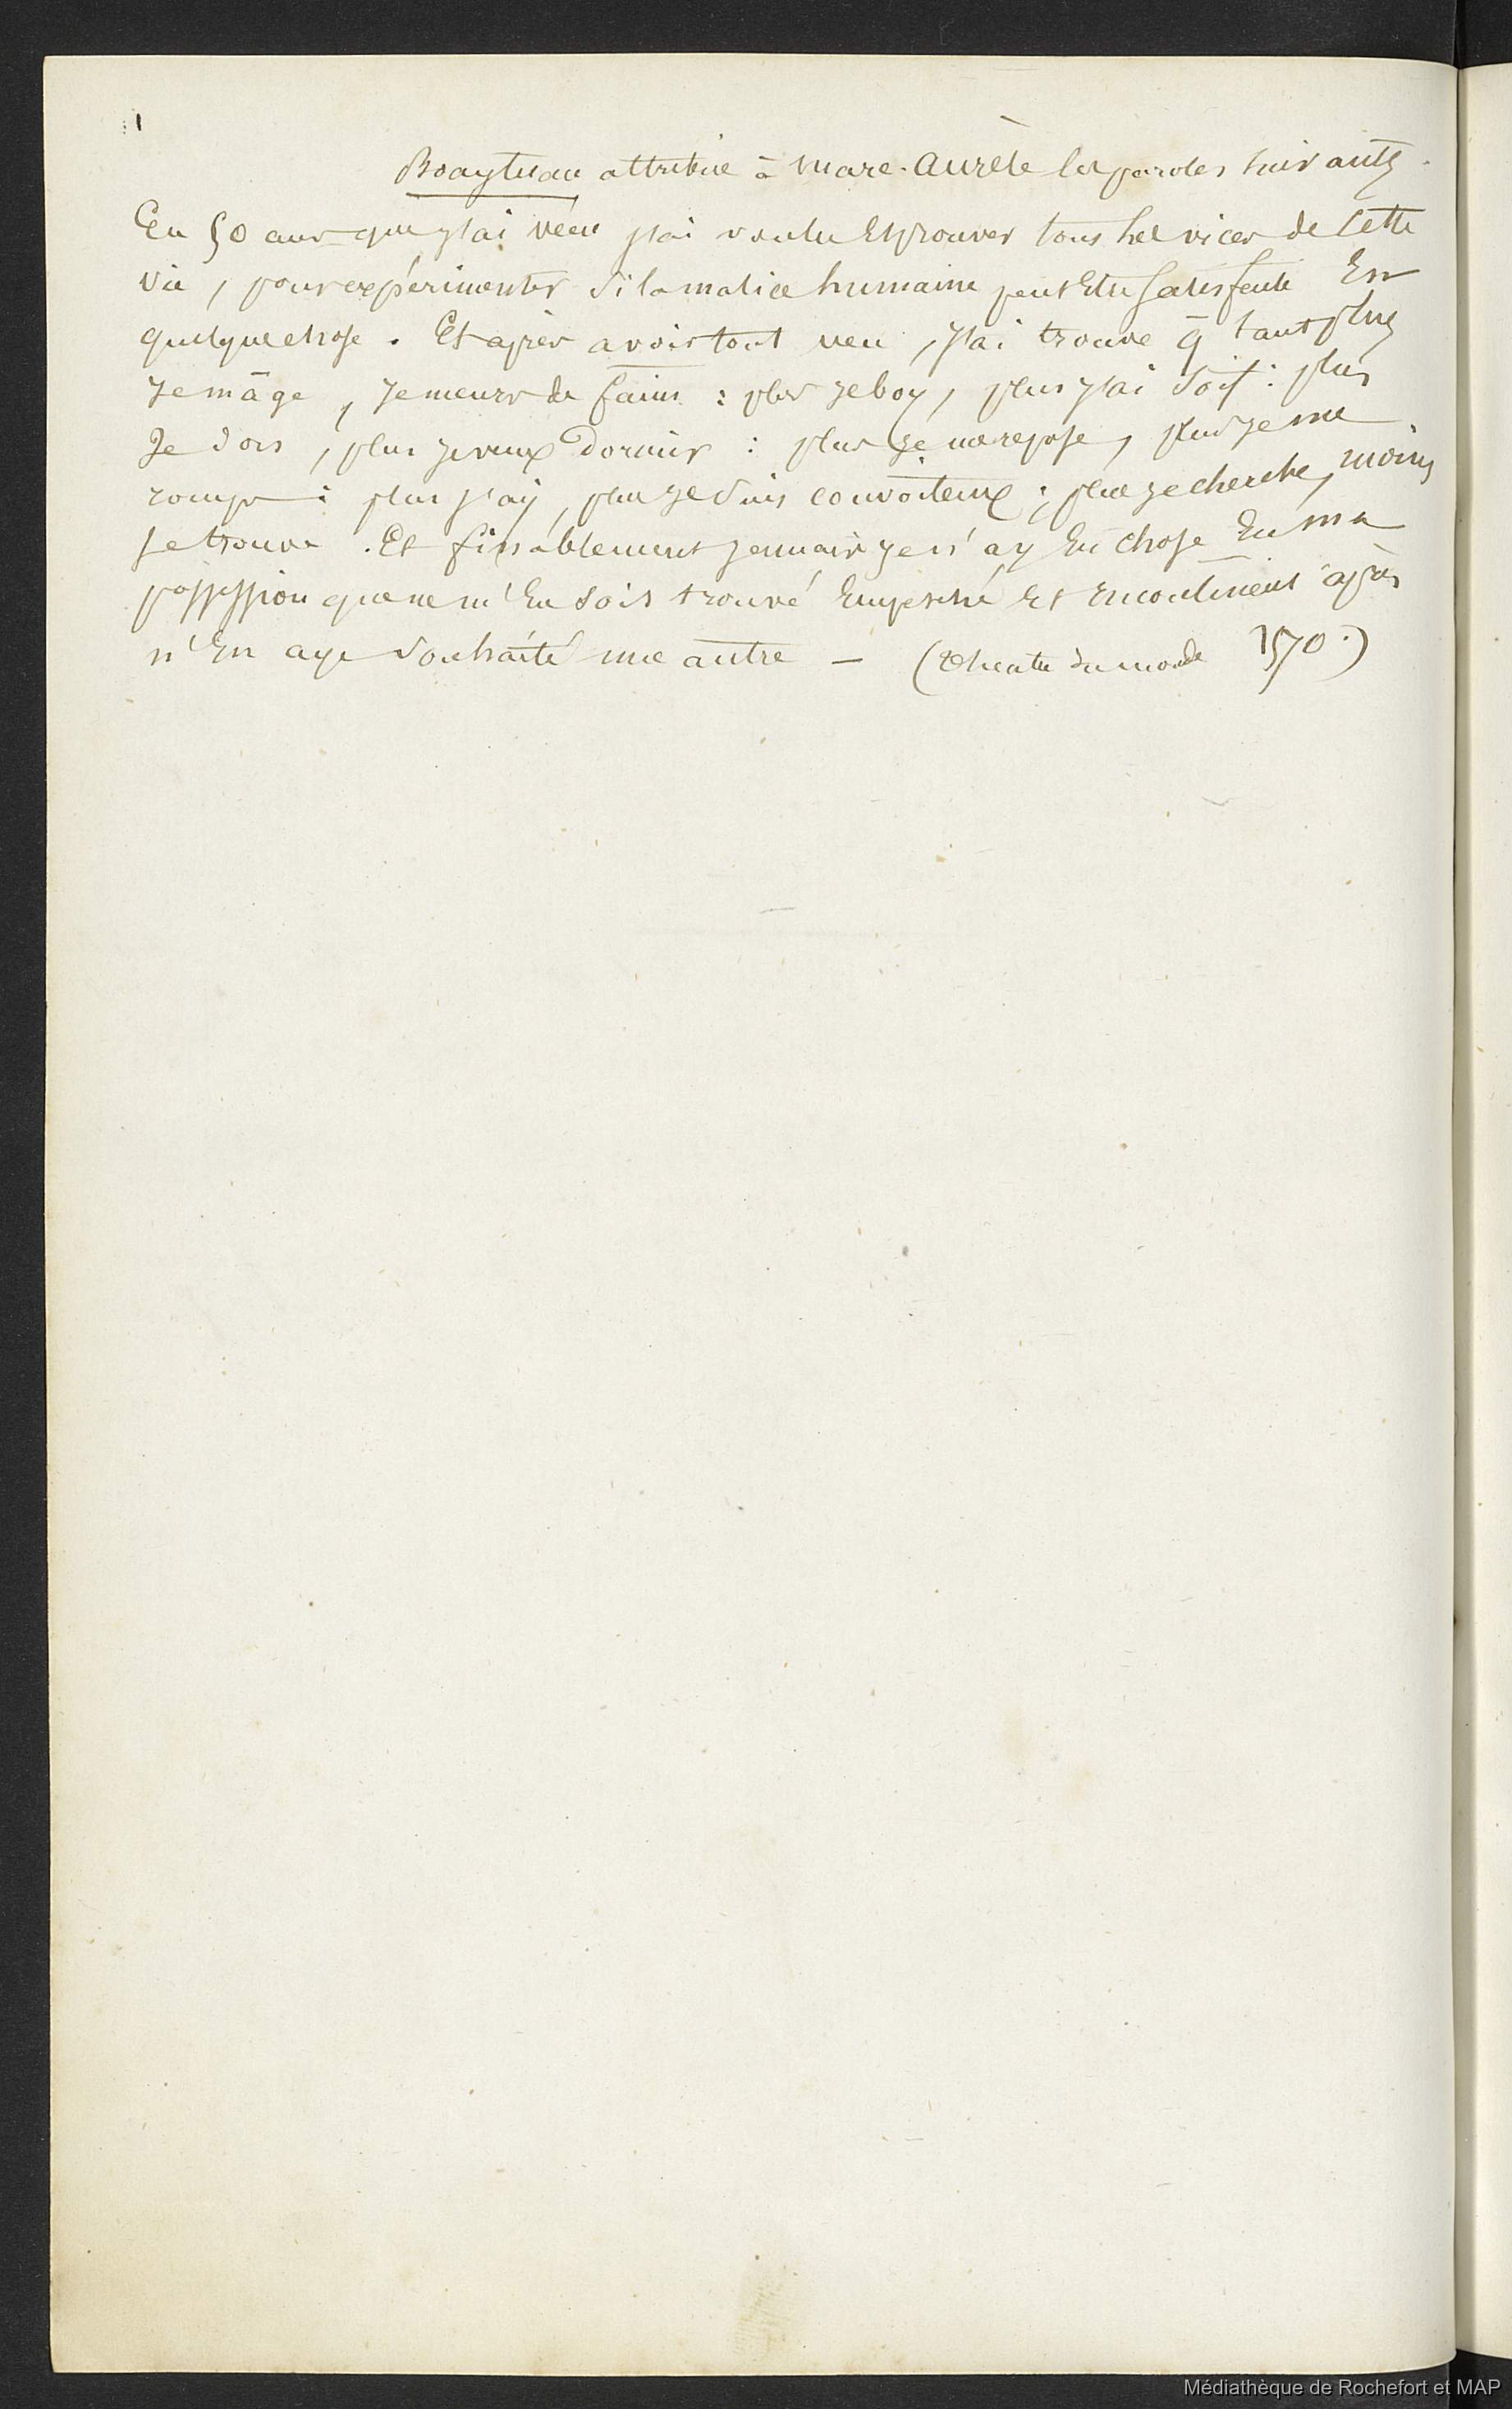 1
Boaystuau attribue à Marc-Aurèle les paroles suivants.
En 50 ans que j'ai vécu j'ai voulu Esprouver tous les vices de cette
vie, pour expérimenter si la malice humaine peut Etre satisfaite En
quelque chose. Et après avoir tout veu, j'ai trouvé q̄ tant plus
je māge, je meurs de faim : plus je boy, plus j'ai soif : plus
je dors, plus je veux dormir : plus je me repose, plus je me
romps : plus j'ay, plus je suis convoiteux ; plus je cherche, moins
je trouve. Et finablement jamais je n'ay Eu chose En ma
possession que ne m'En sois trouvé Empesché Et incontinent après
n'En aye souhaité une autre — (Theatre du monde 1570.)
Médiathèque de Rochefort et MAP